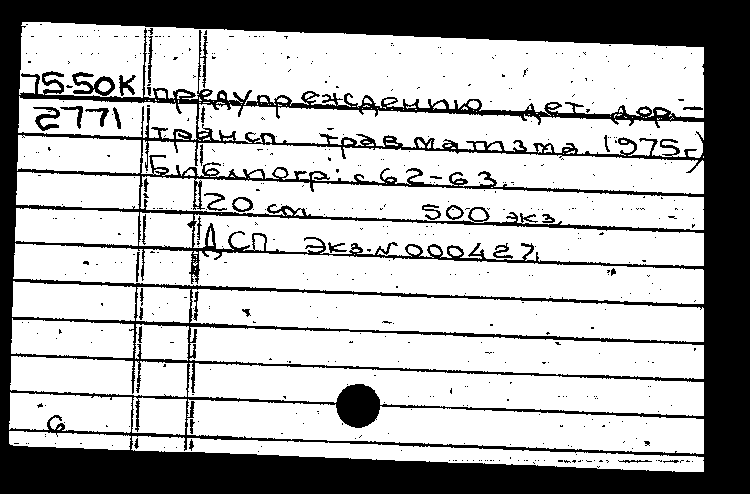 75-50К предупреждению дет. дор.-
2771 трансп. травматизма. (1975г)
Библиогр.: с 62-63.
20 см 500 экз.
ДСП. Экз. № 000427.
6